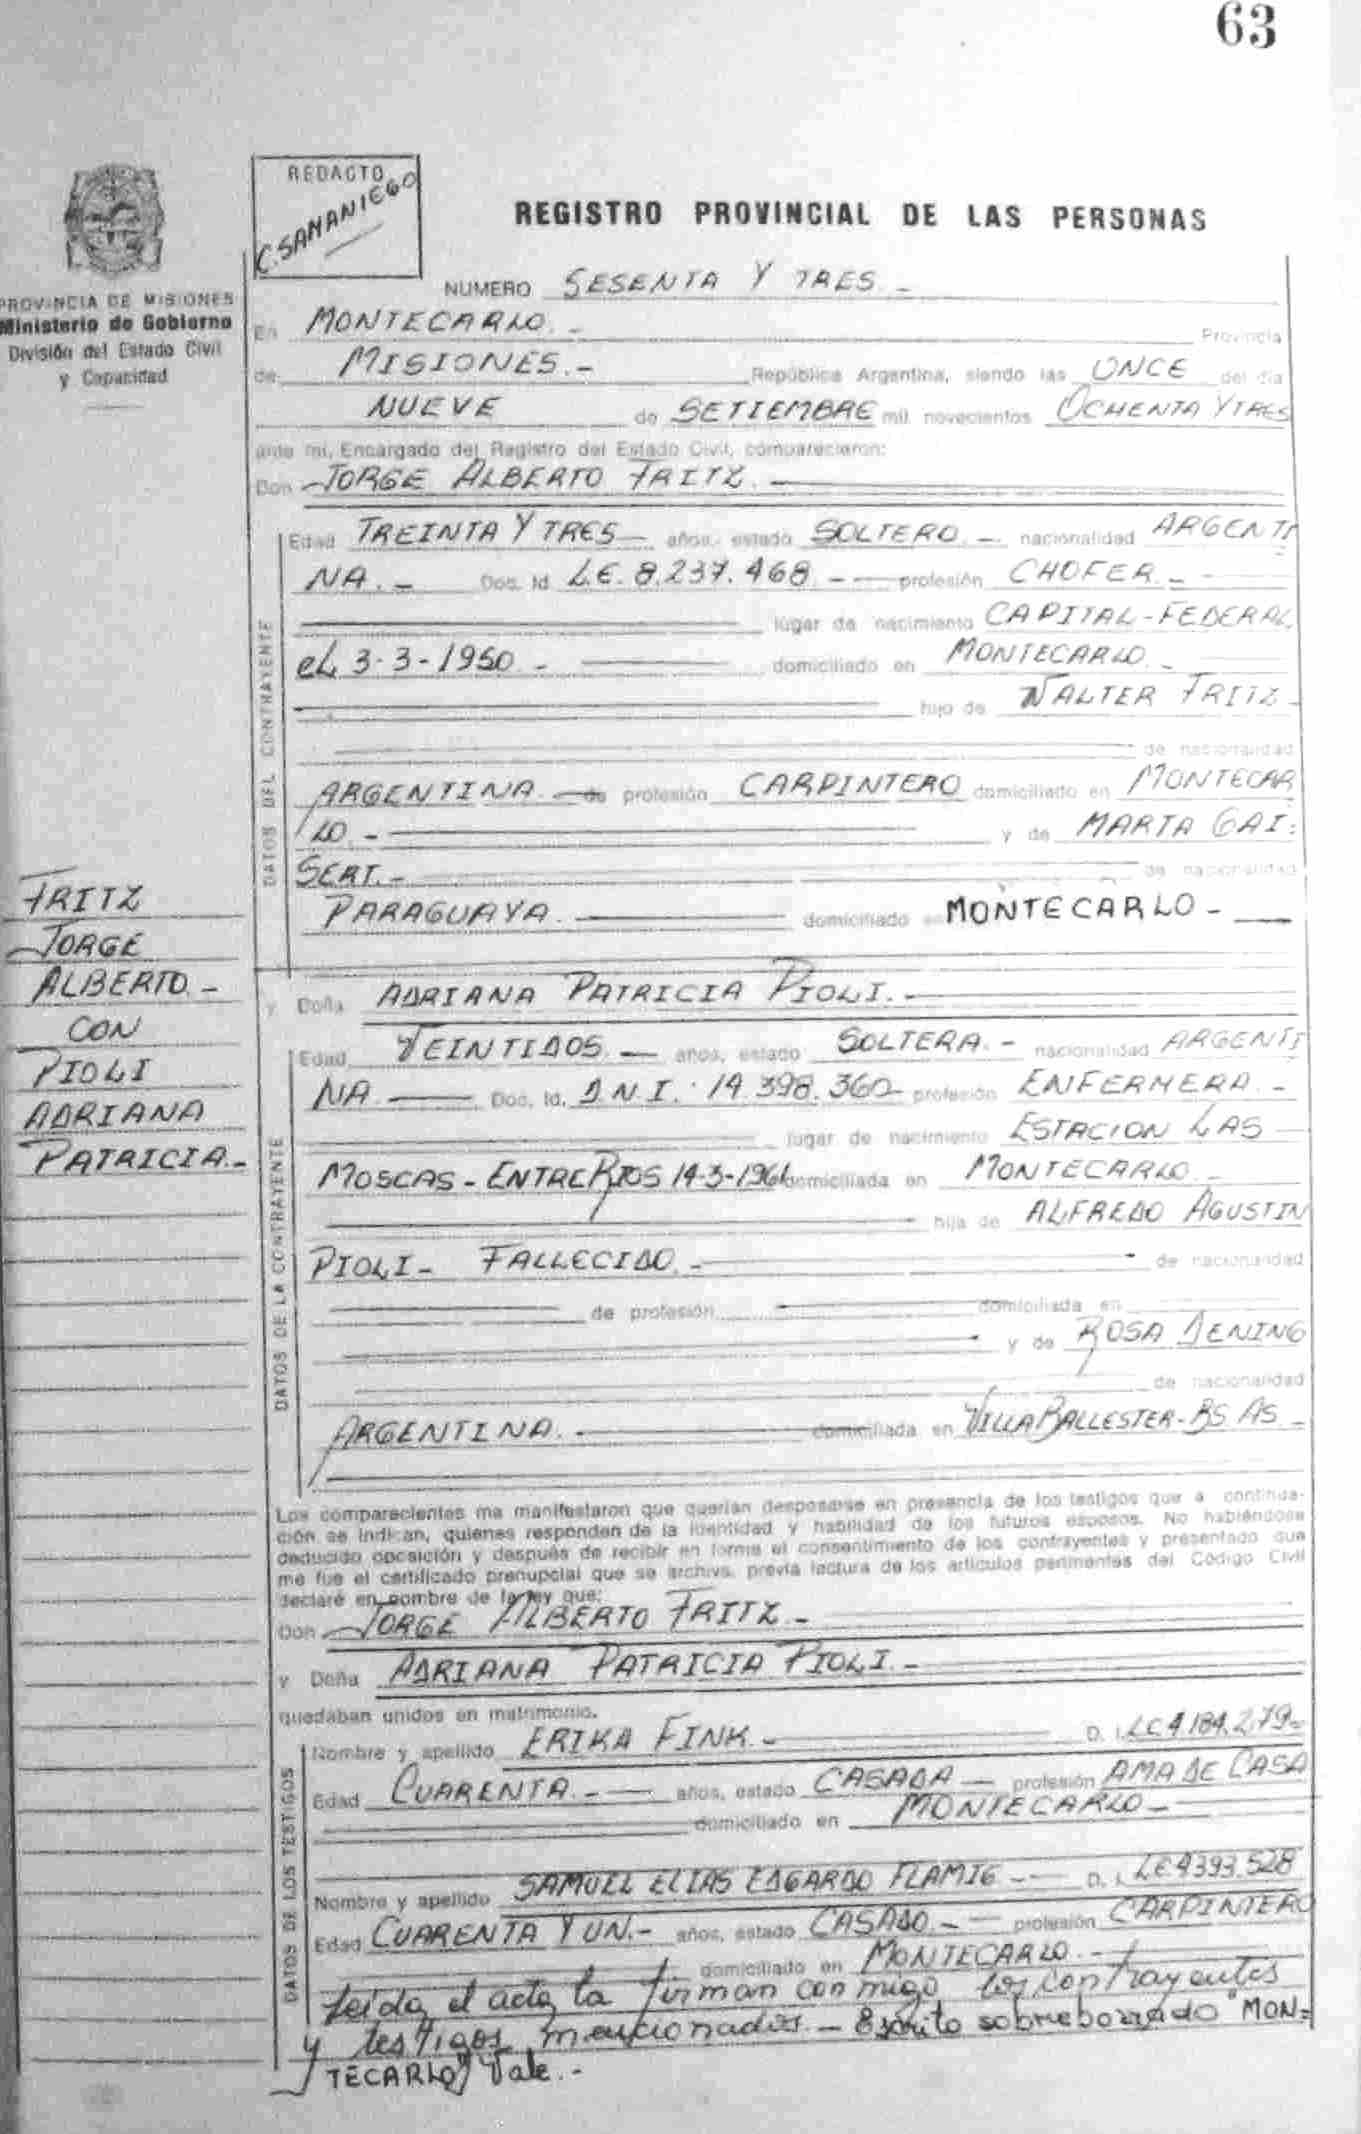 63
REDACTO
C. SAMANIEGO
REGISTRO PROVINCIAL DE LAS PERSONAS
PROVINCIA DE MISIONES
Ministerio de Gobierno
División del Estado Civil
y Capacidad
NUMERO SESENTA Y TRES.-
En MONTECARLO.- Provincia
de MISIONES.- República Argentina, siendo las ONCE del día
NUEVE de SETIEMBRE mil novecientos OCHENTA Y TRES
ante mí, Encargado del Registro del Estado Civil, comparecieron:
Don JORGE ALBERTO FRITZ.-
DATOS DEL CONTRAYENTE
Edad TREINTA Y TRES años, estado SOLTERO.- nacionalidad ARGENTI
NA.- Doc. Id. L.E. 8.237.468.- profesión CHOFER.-
lugar de nacimiento CAPITAL-FEDERAL
el 3-3-1950.- domiciliado en MONTECARLO.-
hijo de WALTER FRITZ-
de nacionalidad
ARGENTINA.- de profesión CARPINTERO domiciliado en MONTECAR
LO.- y de MARTA GAI-
SERT.- de nacionalidad
PARAGUAYA. domiciliado en MONTECARLO-
FRITZ
JORGE
ALBERTO.-
CON
PIOLI
ADRIANA
PATRICIA.-
y Doña ADRIANA PATRICIA PIOLI.-
DATOS DE LA CONTRAYENTE
Edad VEINTIDOS.- años, estado SOLTERA.- nacionalidad ARGENTI
NA Doc. Id. D.N.I. 14.398.360- profesión ENFERMERA.-
lugar de nacimiento ESTACION LAS
MOSCAS-ENTRE RIOS 14-3-1961 domiciliada en MONTECARLO.-
hija de ALFREDO AGUSTIN
PIOLI- FALLECIDO.- de nacionalidad
de profesión domiciliada en
y de ROSA DENING
de nacionalidad
ARGENTINA.- domiciliada en VILLA BALLESTER-BS AS-
Los comparecientes me manifestaron que querían desposarse en presencia de los testigos que a continua-
ción se indican, quienes responden de la identidad y habilidad de los futuros esposos. No habiéndose
deducido oposición y después de recibir en forma el consentimiento de los contrayentes y presentado que
me fue el certificado prenupcial que se archiva, previa lectura de los artículos pertinentes del Código Civil
declaré en nombre de la ley que:
Don JORGE ALBERTO FRITZ-
y Doña ADRIANA PATRICIA PIOLI.-
quedaban unidos en matrimonio.
DATOS DE LOS TESTIGOS
Nombre y apellido ERIKA FINK.- D. I. LC 4.184.279-
Edad CUARENTA.- años, estado CASADA profesión AMA DE CASA
domiciliado en MONTECARLO-
Nombre y apellido SAMUEL ELIAS EDGARDO FLAMIG-- D. I. LE 4393.528
Edad CUARENTA Y UN.- años, estado CASADO.- profesión CARPINTERO
domiciliado en MONTECARLO.-
Leída el acta la firman conmigo los contrayentes
y testigos mencionados.- Escrito sobreborrado "MON=
TECARLO" Vale.-